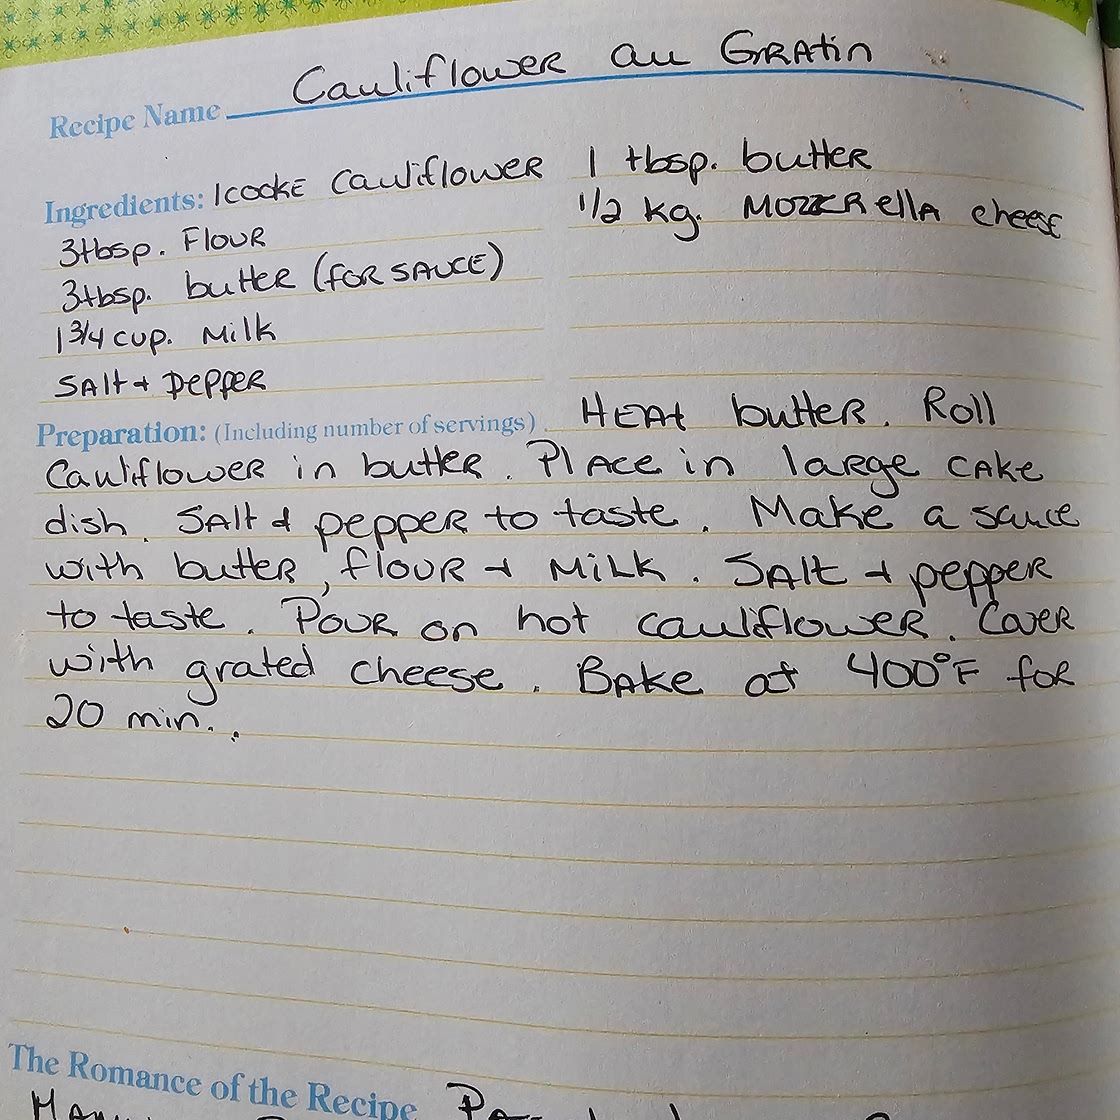 Recipe Name Cauliflower au Gratin
Ingredients: 1 cooke Cauliflower
3 tbsp. Flour
3 tbsp. butter (for sauce)
1 3/4 cup. Milk
Salt + Pepper
1 tbsp. butter
1/2 kg. Mozzerella cheese
Preparation: (Including number of servings). Heat butter. Roll
Cauliflower in butter. Place in large cake
dish. Salt & pepper to taste. Make a sauce
with butter, flour + Milk. Salt + pepper
to taste. Pour on hot cauliflower. Cover
with grated cheese. Bake at 400°F for
20 min..
The Romance of the Recipe